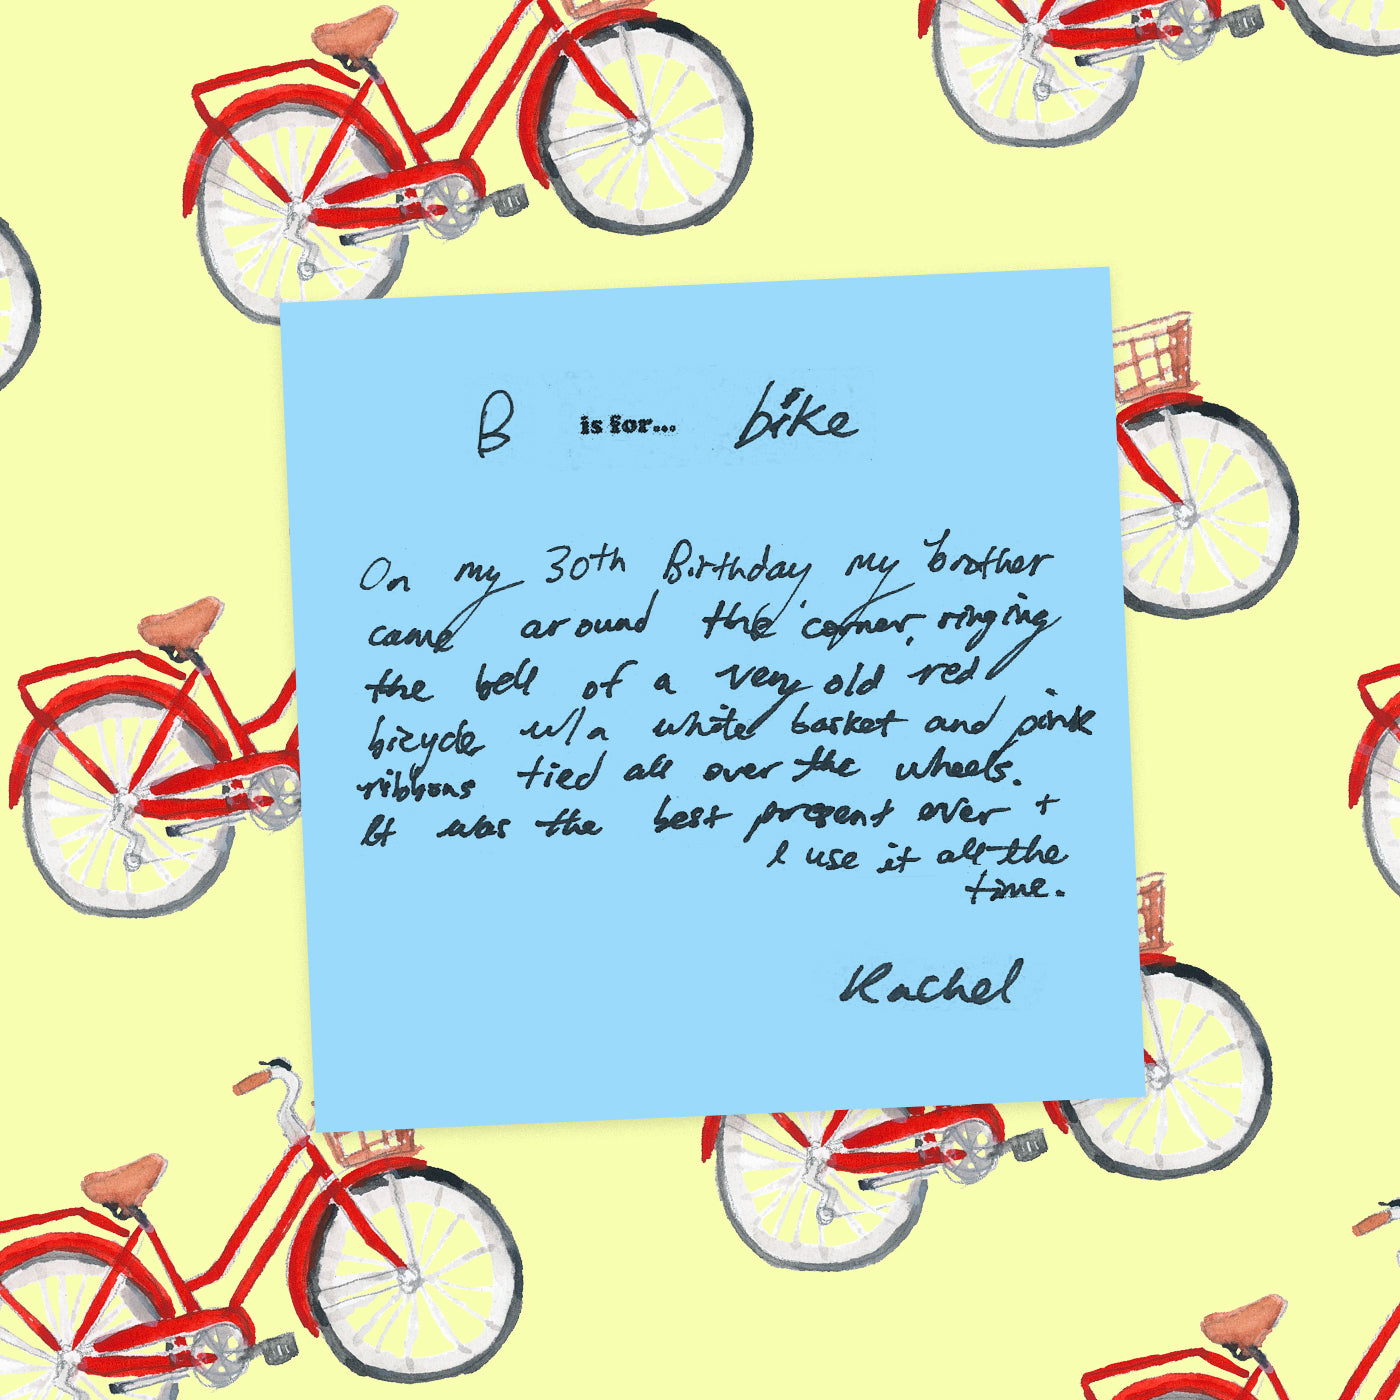 B is for... bike
On my 30th Birthday my brother
came around the corner, ringing
the bell of a very old red
bicycle w/a white basket and pink
ribbons tied all over the wheels.
It was the best present ever +
I use it all the
time.
Rachel